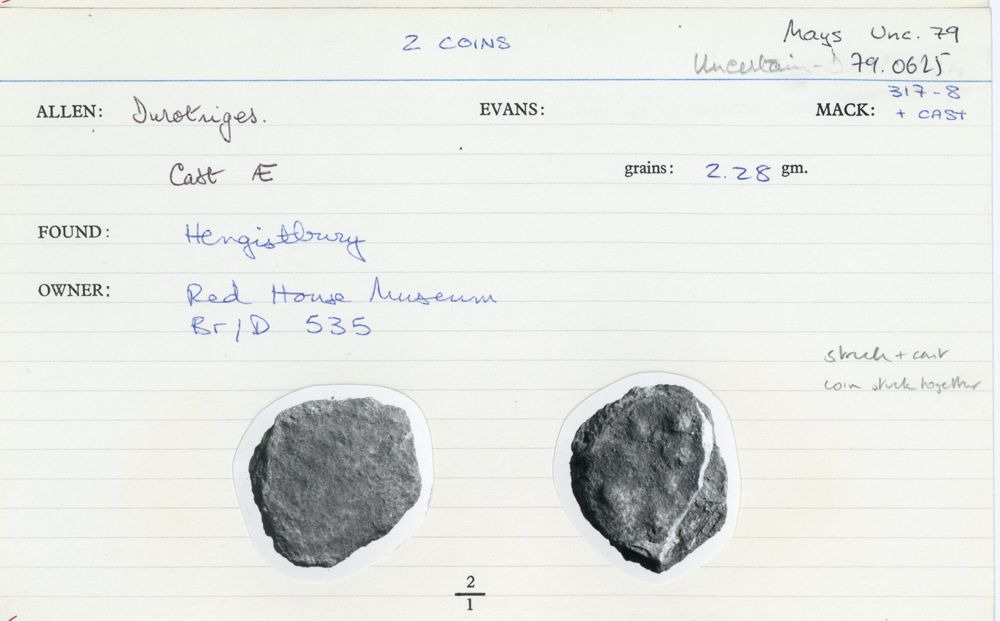 2 COINS
Mays Unc. 79
Uncertain - 79.0625
ALLEN: Durotriges.
EVANS:
MACK: 317-8
+ CAST
Cast Æ
grains: 2.28 gm.
FOUND: Hengistbury
OWNER: Red House Museum
Br/D 535
struck + cast
coin stuck together
2
1